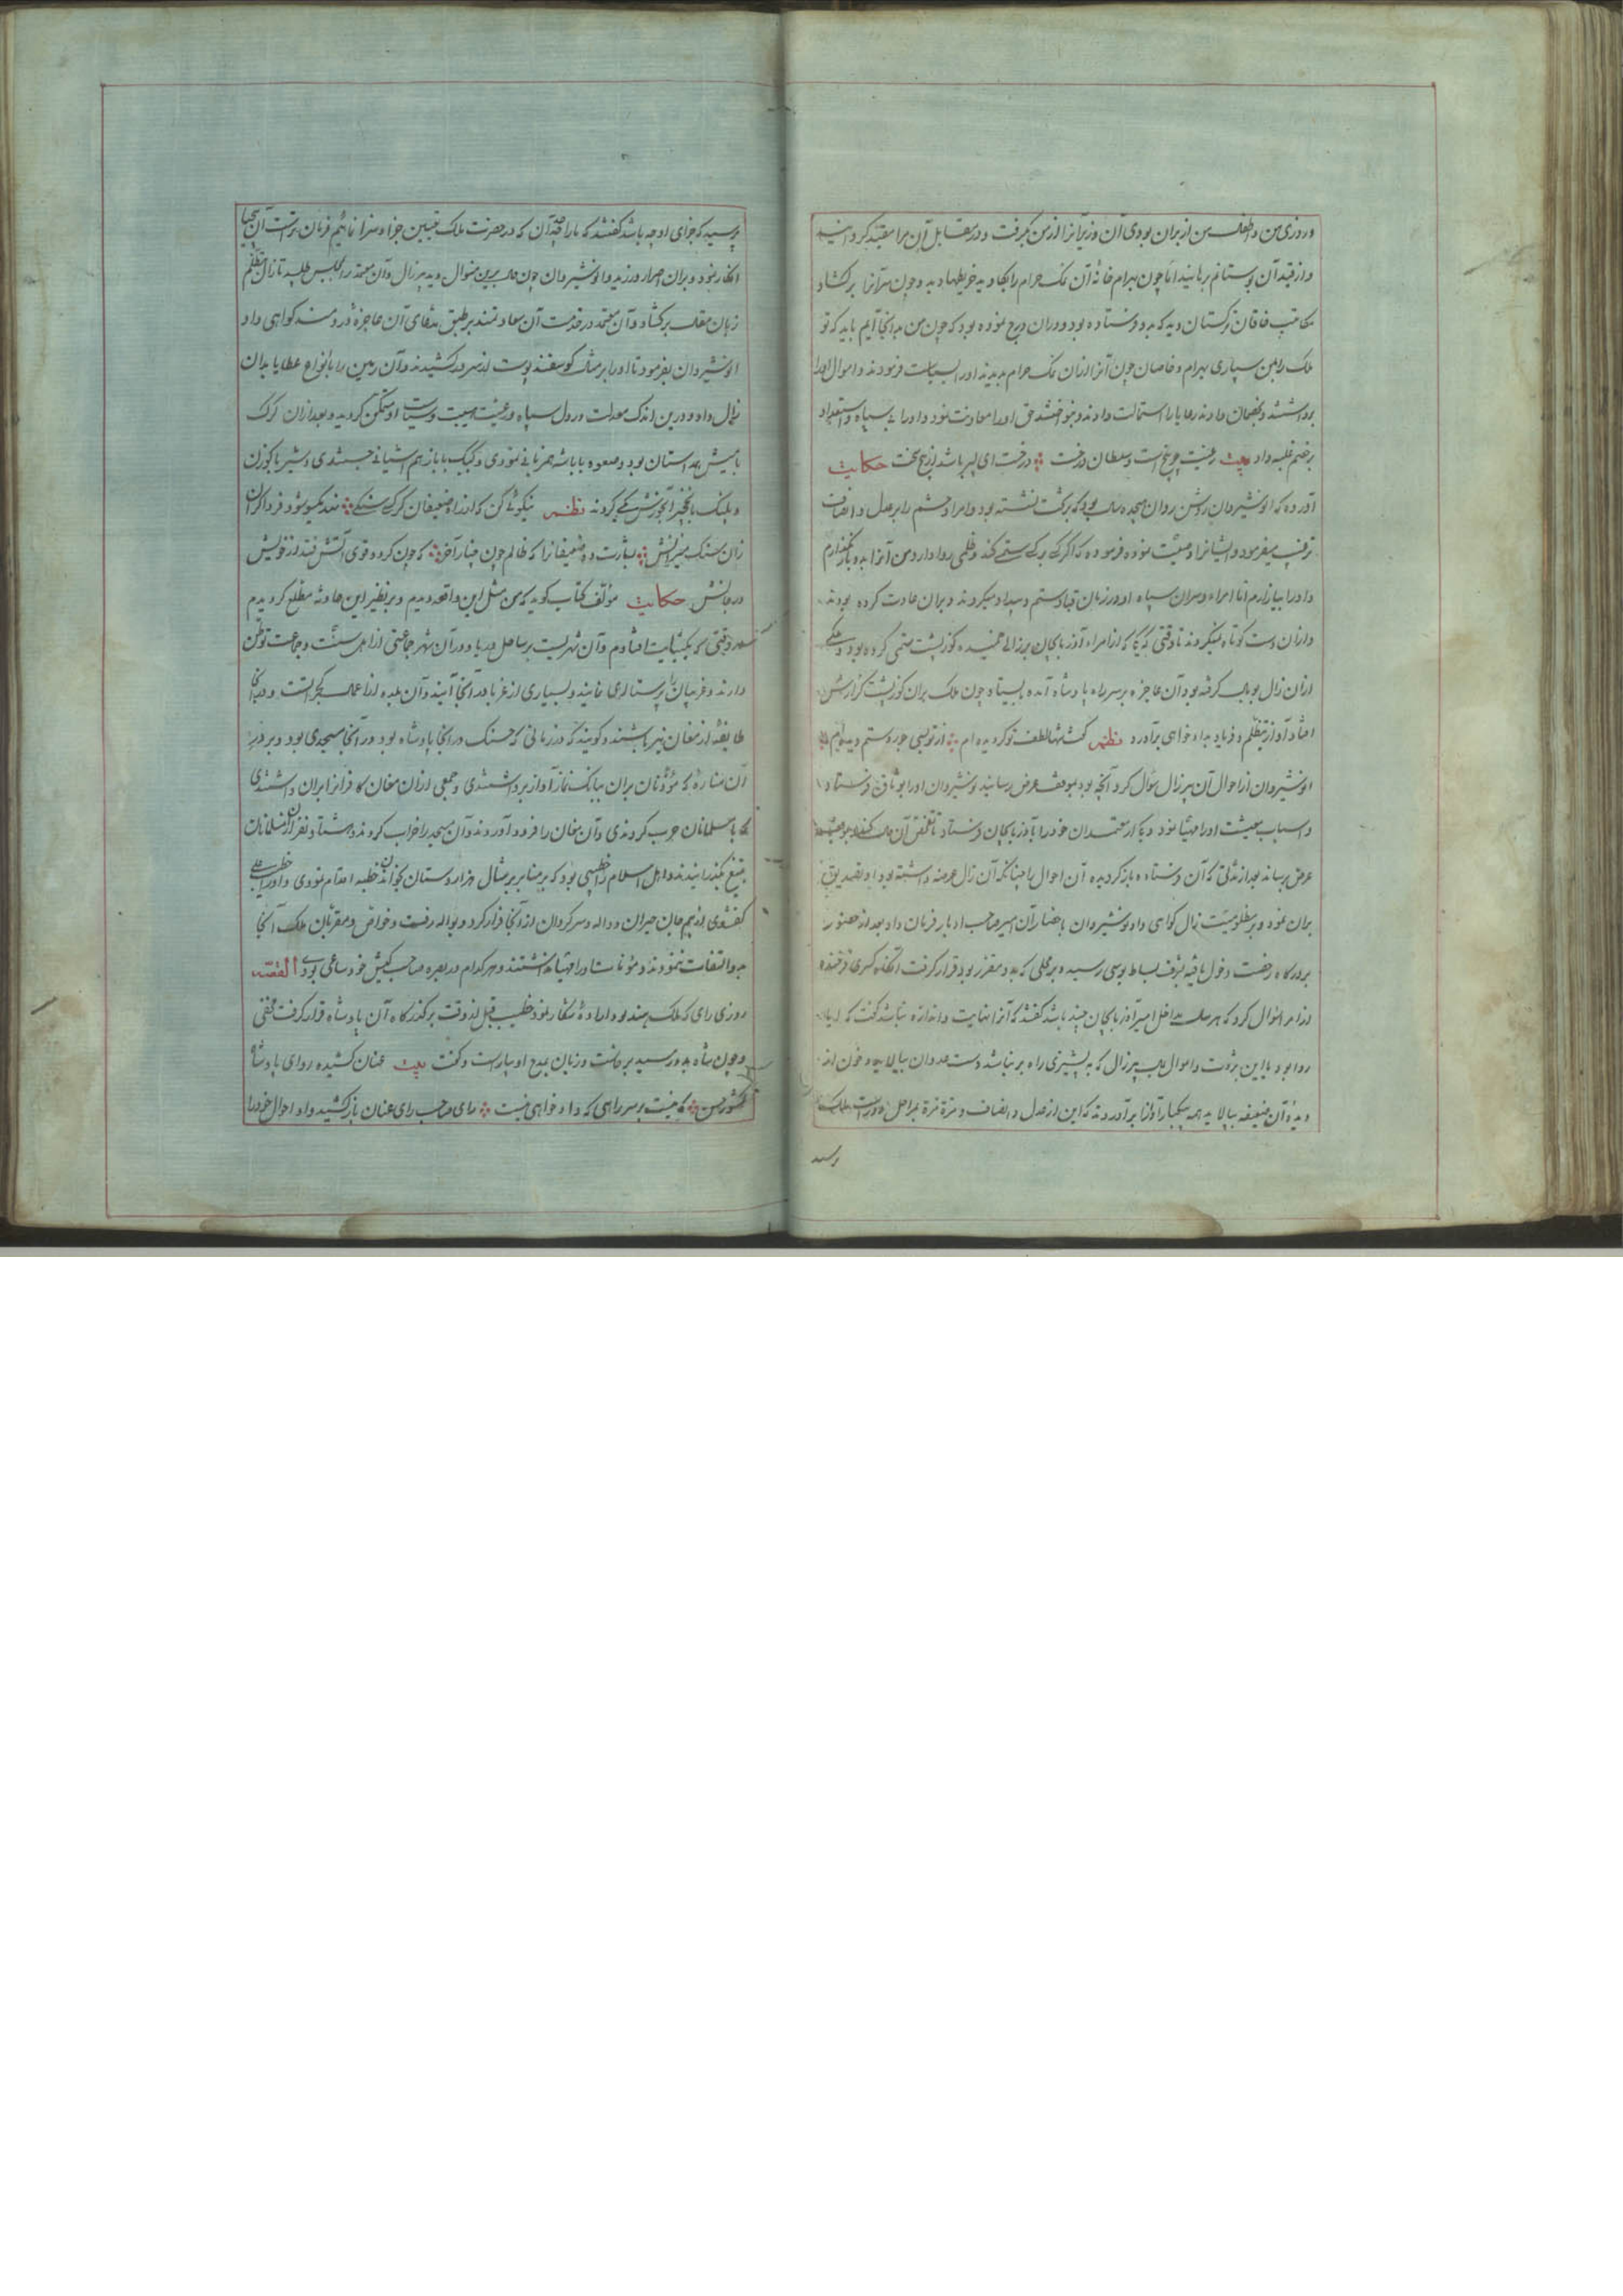 و روزی من و اطفال من از بران بودی آن وزیر آنرا از من بگرفت و در مقابل آن مرا مقید گردانید
و از قید آن بوستانم برهانید اما چون بهرام خانهٔ آن نمک حرام را بکاوید خریطها دید و چون سر آنرا برکشاد
مکاتب خاقان ترکستان دید که بدو فرستاده بود و در آن درج نموده بود که چون من بدانجا آیم باید که تو
ملک را بمن سپاری بهرام و خاصان چون آنرا از آن نمک حرام بدیدند او را سیاست فرمودند و اموال او را
برداشتند و بخصمان دادند رعایا را استمالت دادند و بنواختند حق او را معاونت نمود و او را بی سپاه و استعداد
بر خصم غلبه داد بیت رعیت چو بیخ است و سلطان درخت درخت ای پسر باشد از بیخ سخت حکایت
آورده که انوشیروان روشن روان هجده ساله بود که بر تخت نشسته بود و امرا و حشم را بر عدل و انصاف
ترغیب میفرمود و ایشانرا وصیت نموده فرموده که اگر کسی بر کسی ستم کند و ظلمی روا دارد من آنرا بدو باز نگذارم
و او را بیازارم اما امراء و سران سپاه او در زمان قباد ستم و بیداد میکردند و بران عادت کرده بودند
و از آن دست کوتاه نمیکردند تا وقتی که یکی از امراء آذربایجان بر زالی خمیده گوژپشت ستمی کرده بود و ملکی
از آن زال بوبال گرفته بود آن عاجزه بر سر راه پادشاه آمده بایستاد چون ملک بران گوژپشت گذارش
افتاد آواز تظلم و فریاد و داد خواهی برآورد نظم گفت شها لطف تو کم دیده ام از تو بسی جور و ستم دیده ام
انوشیروان از احوال آن پیر زال سؤال کرد آنچه بود بموقف عرض رسانید نوشیروان او را بوثاق فرستاد
و اسباب معیشت او را مهیا نمود و یکی از معتمدان خود را بآذربایجان فرستاد تا تحقیق آن حال کند و بموقف
عرض رساند بعد از مدتی که آن فرستاده باز گردیده آن احوال را چنانکه آن زال عرضه داشته بود او تصدیق
بران نمود و بر مظلومیت زال گواهی داد نوشیروان باحضار آن امیر صاحب ادبار فرمان داد بعد از حضور
بدرگاه رخصت دخول یافته بشرف بساط بوسی رسیده و بر محلی که بدو مقرر بود قرار گرفت آنگاه کسری فرخنده
از امرا سؤال کرد که هر ساله مداخل امیر آذربایجان چند باشد گفتند که آنرا نهایت و اندازه نباشد گفت که آیا
روا بود با این ثروت و اموال بمال پیرزال که به پشیزی راه بر نباشد دست عدوان بیالاید و خون از
دیدهٔ آن ضعیفه بپالاید همه بیکبار آواز برآوردند که این از عدل و انصاف و مروة بمراحل دور است ملک
پرسید
پرسید که جزای او چه باشد گفتند که ما را چه حد آن که در حضرت ملک تعیین جزا و سزا نمائیم فرمان تراست آن بیحیا
انکار نمود و بران اصرار ورزید و انوشیروان چون حال برین منوال دید پیر زال و آن معتمد را بمجلس طلبید تا زال تظلم
زبان مقال برکشاد و آن معتمد در خدمت آن سعادتمند بر طبق مدعای آن عاجزهٔ دردمند گواهی داد
انوشیروان بفرمود تا او را بر مثال گوسفند پوست از سر درکشیدند و آن زمین را با انواع عطایا بدان
زال داد و درین اندک معدلت در دل سپاه و رعیت هیبت و سیاست او متمکن گردید و بعد از آن گرگ
با میش همداستان بود و صعوه با باشه همزبانی نمودی و کبک با باز هم آشیانی جستندی و شیر با گوزن
و پلنگ با نخجیر آمیزش میکردند نظم نیکوئی کن که از راه ضعیفان گر کسی سنگی نهد یکسو شود فردا گران
زان سنگ میزانش بشارت ده ضعیفانرا که ظالم چون چنار آخر که چون گردد قوی آتش فتد از خویش
در جانش حکایت مؤلف کتاب گوید که من مثل این واقعه دیدم و بر نظیر این حادثه مطلع گردیدم
وقتی که بکنبایت افتادم و آن شهریست بر ساحل دریا و در آن شهر جماعتی از اهل سنت و جماعت توطن
دارند و غریبان را پرستاری نمایند و بسیاری از غربا در آنجا آیند و آن بلده از اعمال گجراتست و در آنجا
طایفهٔ از مغان نیز باشند و گویند که در زمانی که جنک در آنجا پادشاه بود در آنجا مسجدی بود و بر در
آن مناره که مؤذنان بران ببانگ نماز آواز برداشتندی و جمعی از آن مغان کافرانرا بران داشتندی
که با مسلمانان حرب کردندی و آن مغان را فرود آوردند و آن مسجد را خراب کردند و هشتاد نفر از آن مسلمانان
بتیغ بگذرانیدند و اهل اسلام را خطیبی بود که بر منابر بر مثال هزار دستان بخواندن خطبه اقدام نمودی و او را خطیب علی
گفتندی از بیم جان حیران و واله و سرگردان از آنجا فرار کرد و بواله رفت و خواص و مقربان ملک آنجا
بدو التفات ننمودند و مؤنات او را مهیا نداشتند و هر کدام در بهره صاحب کیش خود ساعی بودی القصه
روزی رای که ملک هند بود ارادهٔ شکار نمود خطیب قبل از وقت بر گذرگاه آن پادشاه قرار گرفت مخفی
و چون شاه بدو رسید برخاست و زبان بمدح او بیاراست و گفت بیت عنان کشیده رو ای پادشاه
کشور حسن که نیست بر سر راهی که داد خواهی نیست رای صاحب رای عنان باز کشید و او احوال خود را